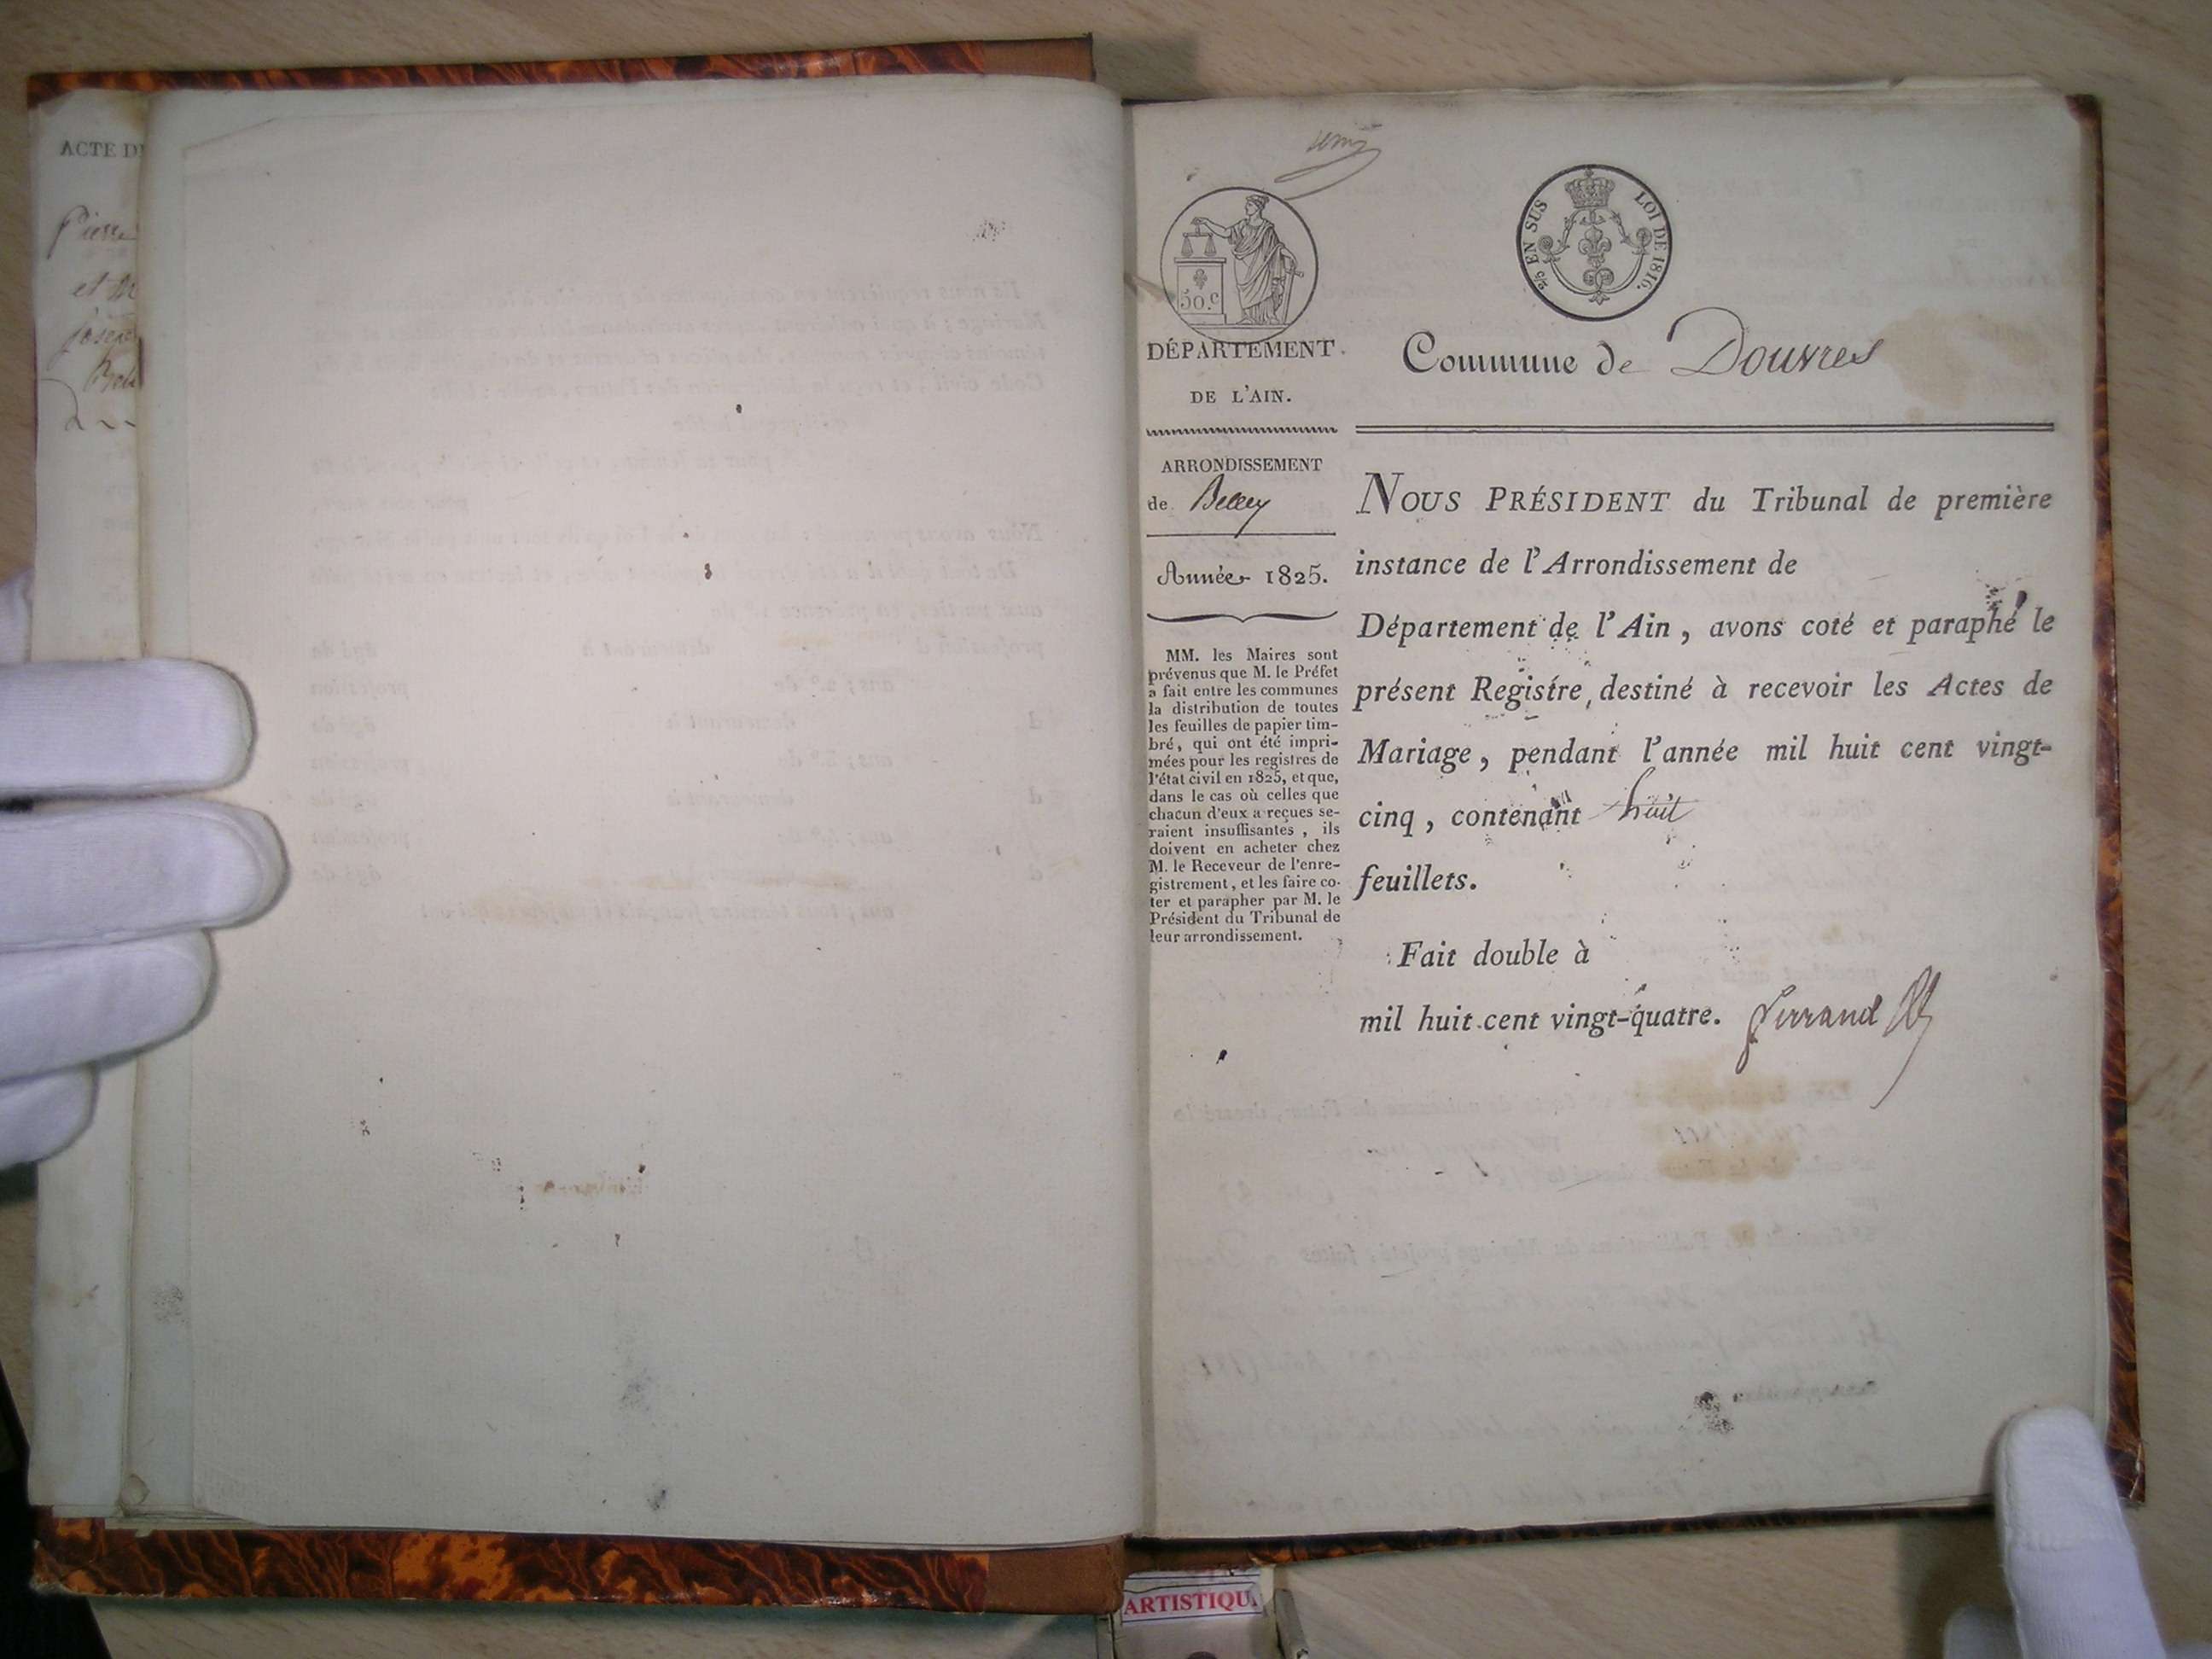 ACTE DE
Pierre
et M
joseph
DÉPARTEMENT
DE L'AIN.
50.c
EN SUS LOI DE 1816.
Commune de Douvres
ARRONDISSEMENT
de Belley
Année 1825.
MM. les Maires sont
prévenus que M. le Préfet
a fait entre les communes
la distribution de toutes
les feuilles de papier tim-
bré, qui ont été impri-
mées pour les registres de
l'état civil en 1825, et que,
dans le cas où celles que
chacun d'eux a reçues se-
raient insuffisantes, ils
doivent en acheter chez
M. le Receveur de l'enre-
gistrement, et les faire co-
ter et parapher par M. le
Président du Tribunal de
leur arrondissement.
NOUS PRÉSIDENT du Tribunal de première
instance de l'Arrondissement de
Département de l'Ain, avons coté et paraphé le
présent Registre, destiné à recevoir les Actes de
Mariage, pendant l'année mil huit cent vingt-
cinq, contenant huit
feuillets.
Fait double à
mil huit cent vingt-quatre. Perrand
ARTISTIQU